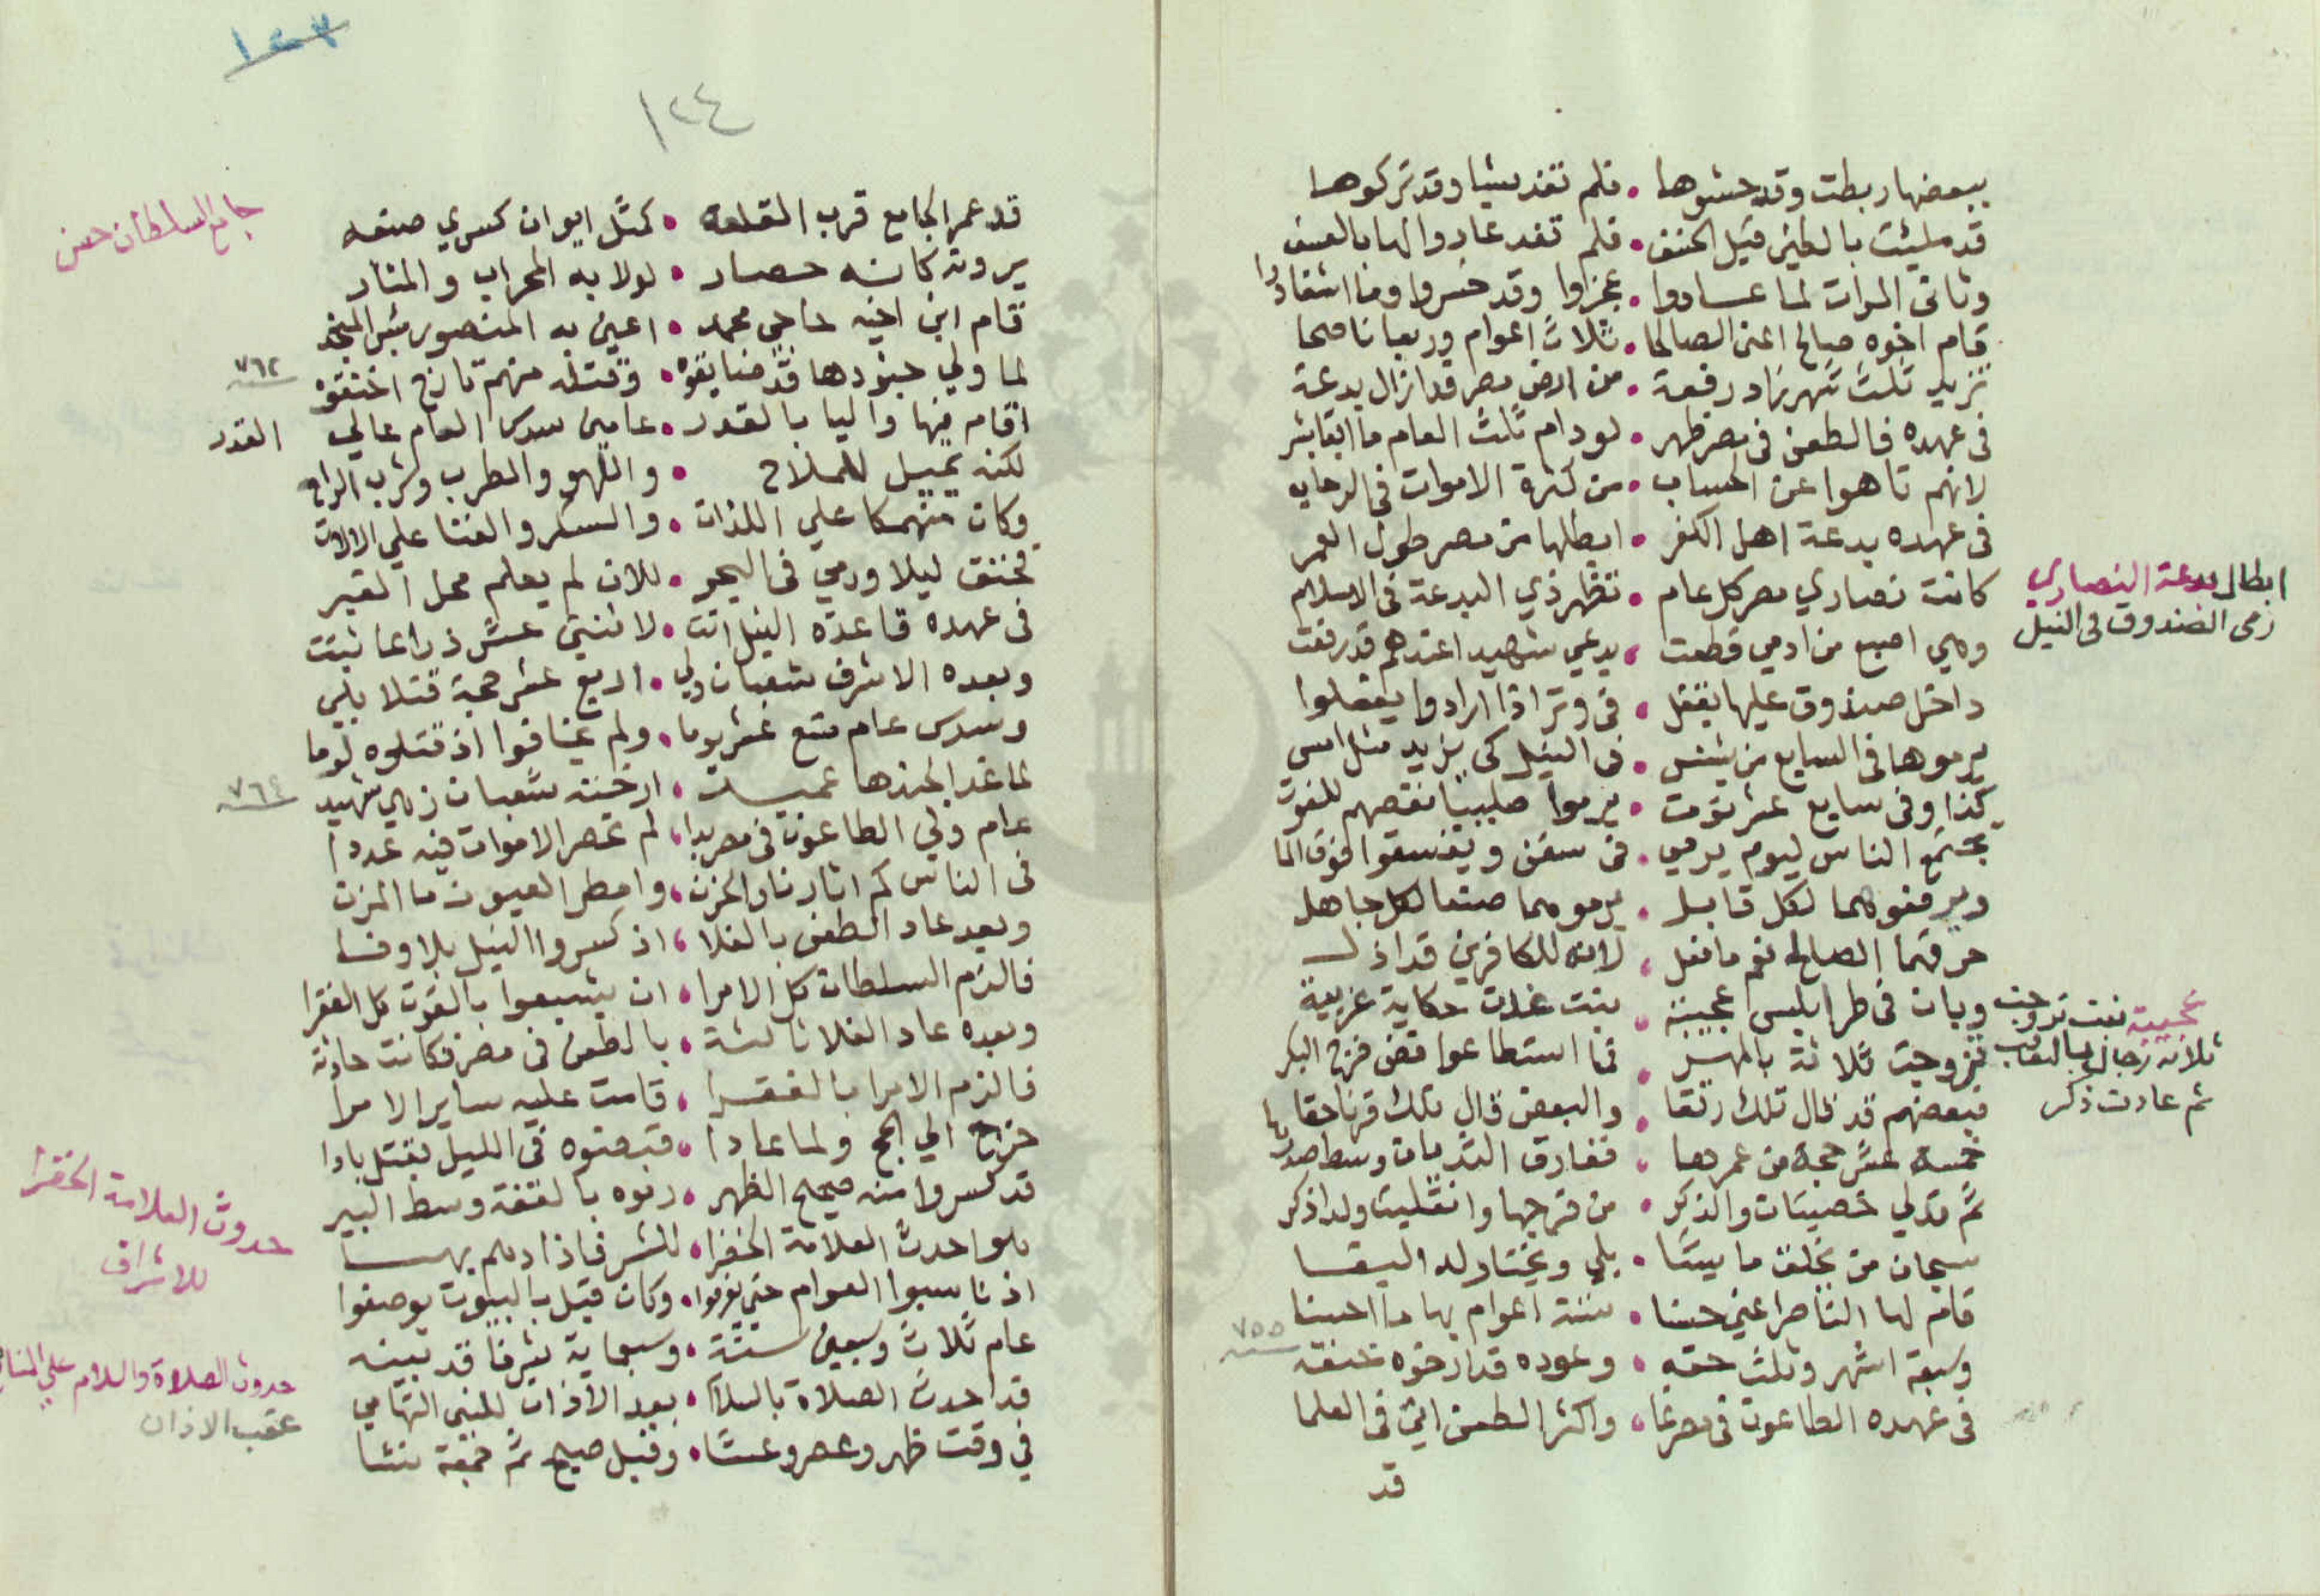 ببعضها ربطت وقد حشوها • فلم تفد شيا وقد تركوها
قد مليئت بالطين قبل الخنق • فلم تفد عادوا لها بالعنف
وثاني المرات لما عادوا • عجزوا وقد خسروا وما استفادوا
قام اخوه صالح اعني الصالحا • ثلاث اعوام وربعا ناصحا
تزيد ثلث شهر زاد رفعة • من ارض مصر قد ازال بدعة
في عهده فالطعن في مصر ظهر • لو دام ثلث العام ما ابقا بشر
لانهم تاهوا عن الحساب • من كثرة الاموات في الرحاب
في عهده بدعة اهل الكفر • ابطلها من مصر طول العمر
كانت نصاري مصر كل عام • تظهر ذي البدعة في الاسلام
وهي اصبع من ادمي قطعت • يدعي شهيدا عندهم قد رفعت
داخل صندوق عليها يقفل • في وتر اذا ارادوا يفعلوا
يرموها في السابع من بشنس • في النيل كي يزيد مثل امس
كذا وفي سابع عشر توت • يرموا صليبا نقصهم للفوت
يجتمع الناس ليوم يرمي • في سفن ويفسقوا فوق الما
ويرفعوهما لكل قابل • يرموهما صنعا لكل جاهل
حرقهما الصالح نعم ما فعل • لانه للكافرين قد اذل
وبان في طرابلس عجيبة • بنت غدت حكاية غريبة
تزوجت ثلاثة بالمهر • فما استطاعوا فض فرج البكر
فبعضهم قد قال تلك رتقا • والبعض قال تلك قرنا حقا
خمسة عشر حجة من عمرها • فغارق الثديان وسط صدرها
ثم تدلي خصيتان والذكر • من فرجها وانقلبت ولدا ذكر
سبحان من يخلق ما يشا • بلي ويختار له البقا
قام لها الناصر اعني حسنا • ستة اعوام بها ما احسنا
وسبعة اشهر وثلث حقه • وعوده قد ارخوه خنقه
في عهده الطاعون في مصر نما • واكثر الطعن اتي في العلما
قد
ابطال بدعة النصاري
رمي الصندوق في النيل
عجيبة بنت تزوجت
ثلاثة رجال
ثم عادت ذكر
٧٥٥
سنه
١٢٤
قد عمر الجامع قرب القلعة • كمثل ايوان كسري صنعه
يروته كانه حصار • لولا به المحراب والمنار
قام ابن اخيه حاجي محمد • اعين به المنصور
لما ولي جنودها قد ضايقوه • وقتله منهم تارخ اخنقوه
اقام فيها واليا بالغدر • عامين سدس العام عالي القدر
لكنه يميل للملاح • واللهو والطرب وشرب الراح
وكان منهمكا علي اللذات • والسكر والغنا علي الالات
فخنق ليلا ورمي في البحر • للان لم يعلم محل القبر
في عهده قاعدة النيل اتت • لاثنتي عشر ذراعا ثبتت
وبعده الاشرف شعبان ولي • اربع عشر حجة قتلا بلي
وسدس عام تسع عشر يوما • ولم يخافوا اذ قتلوه لوما
لما غدا لجندها عميد • ارخته شعبان زهي شهيد
عام ولي الطاعون في مصر بدا • لم تحصر الاموات فيه عددا
في الناس كم اثار نار الحزن • وامطر العيون ما المزن
وبعد عاد الطعن بالغلا • اذ كسروا النيل بلا وفا
فالزم السلطان كل الامرا • ان يشبعوا بالقوت كل الفقرا
وبعده عاد الغلا ثالثة • بالطعن في مصر فكانت حادثة
فالزم الامرا بالفقرا • قامت عليه ساير الامرا
خرج الي الحج ولما عادا • قبضوه في الليل بقتل بادا
قد كسروا منه صحيح الظهر • رموه بالقفة وسط البير
هو احدث العلامة الخضرا • للشرفا اذا دهم بهما
اذ ناسبوا العوام حتي يعرفوا • وكان قبل بالبيوت يوصفوا
عام ثلاث وسبعين سنة • وسبعماية بشرفا قد تبينه
قد احدث الصلاة بالسلام • بعد الاذان للنبي التهامي
في وقت ظهر وعصر وعشا • وقبل صبح ثم جمعة نشا
جامع السلطان حسن
٧٦٢
سنه
القدر
٧٦٤
سنه
حدوث العلامة الخضرا
للاشراف
حدوث الصلاة والسلام علي المنابر
عقب الاذان